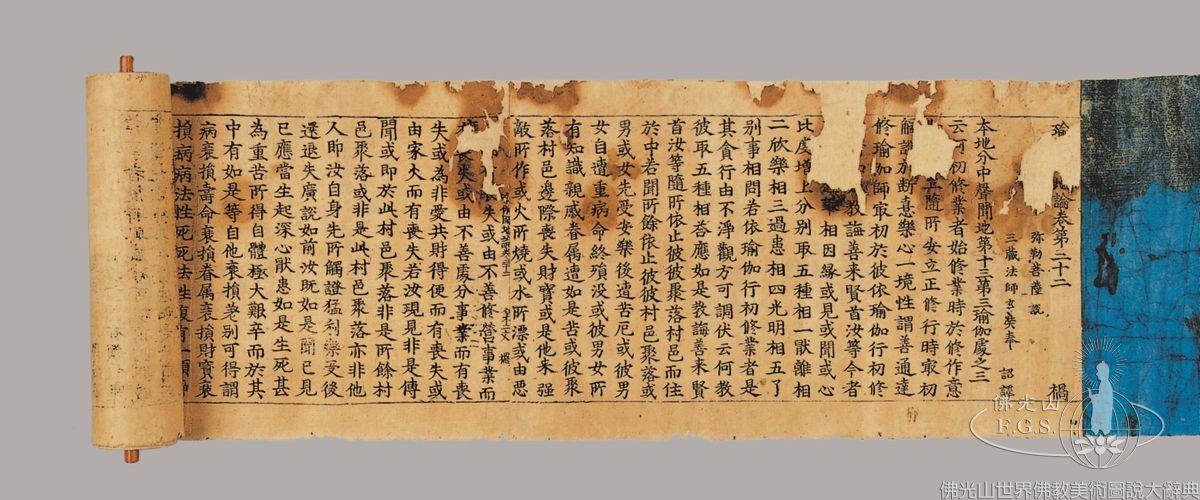 瑜 論卷第三十二 禍
彌勒菩薩說
三藏法師玄奘奉 詔譯
本地分中聲聞地第十三第三瑜伽處之三
云何初修業者始修業時於修作意
立隨所安立正修行時最初
於斷憙樂心一境性謂善通達
修瑜伽師最初於彼依瑜伽行初修
教誨善來賢首汝等今者
相因緣或見或聞或心
比度增上分別取五種相一猒離相
二欣樂相三過患相四光明相五了
別事相問若依瑜伽行初修業者是
其貪行由不淨觀方可調伏云何教
彼取五種相答應如是教誨善來賢
首汝等隨所依止彼彼聚落村邑而住
於中若聞所餘依止彼彼村邑聚落或
男或女先受安樂後遭苦厄或彼男
女自遭重病命終殞沒或彼男女所
有知識親戚眷屬遭如是苦或彼聚
落村邑邊際喪失財寶或是他來強
敵所作或火所燒或水所漂或由惡
失或由不善修營事業而
喪失或由不善處分事業而有喪
失或為非愛共財得便而有喪失或
由家火而有喪失若汝現見非是傳
聞或即於此村邑聚落非是所餘村
邑聚落或非是此村邑聚落亦非他
人即汝自身先所觸證猛利樂受後
還退失廣說如前汝既如是聞已見
已應當生起深心猒患如是生死甚
為重苦所得自體極大艱辛而於其
中有如是等自他衰損差別可得謂
病衰損壽命衰損眷屬衰損財寶衰
損病病法性死死法性復有一類
佛光山
F.G.S.
佛光山世界佛教美術圖說大辭典